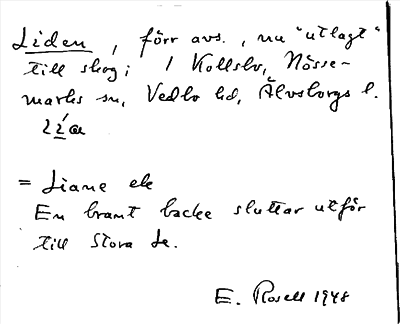 Liden, förr avs., nu "utlagt"
till skog; i Kollsbo, Nösse-
marks sn, Vedbo hd, Älvsborgs l.
= Liane ek
En brant backe sluttar utför
till Stora Le.
E. Rosell 1948